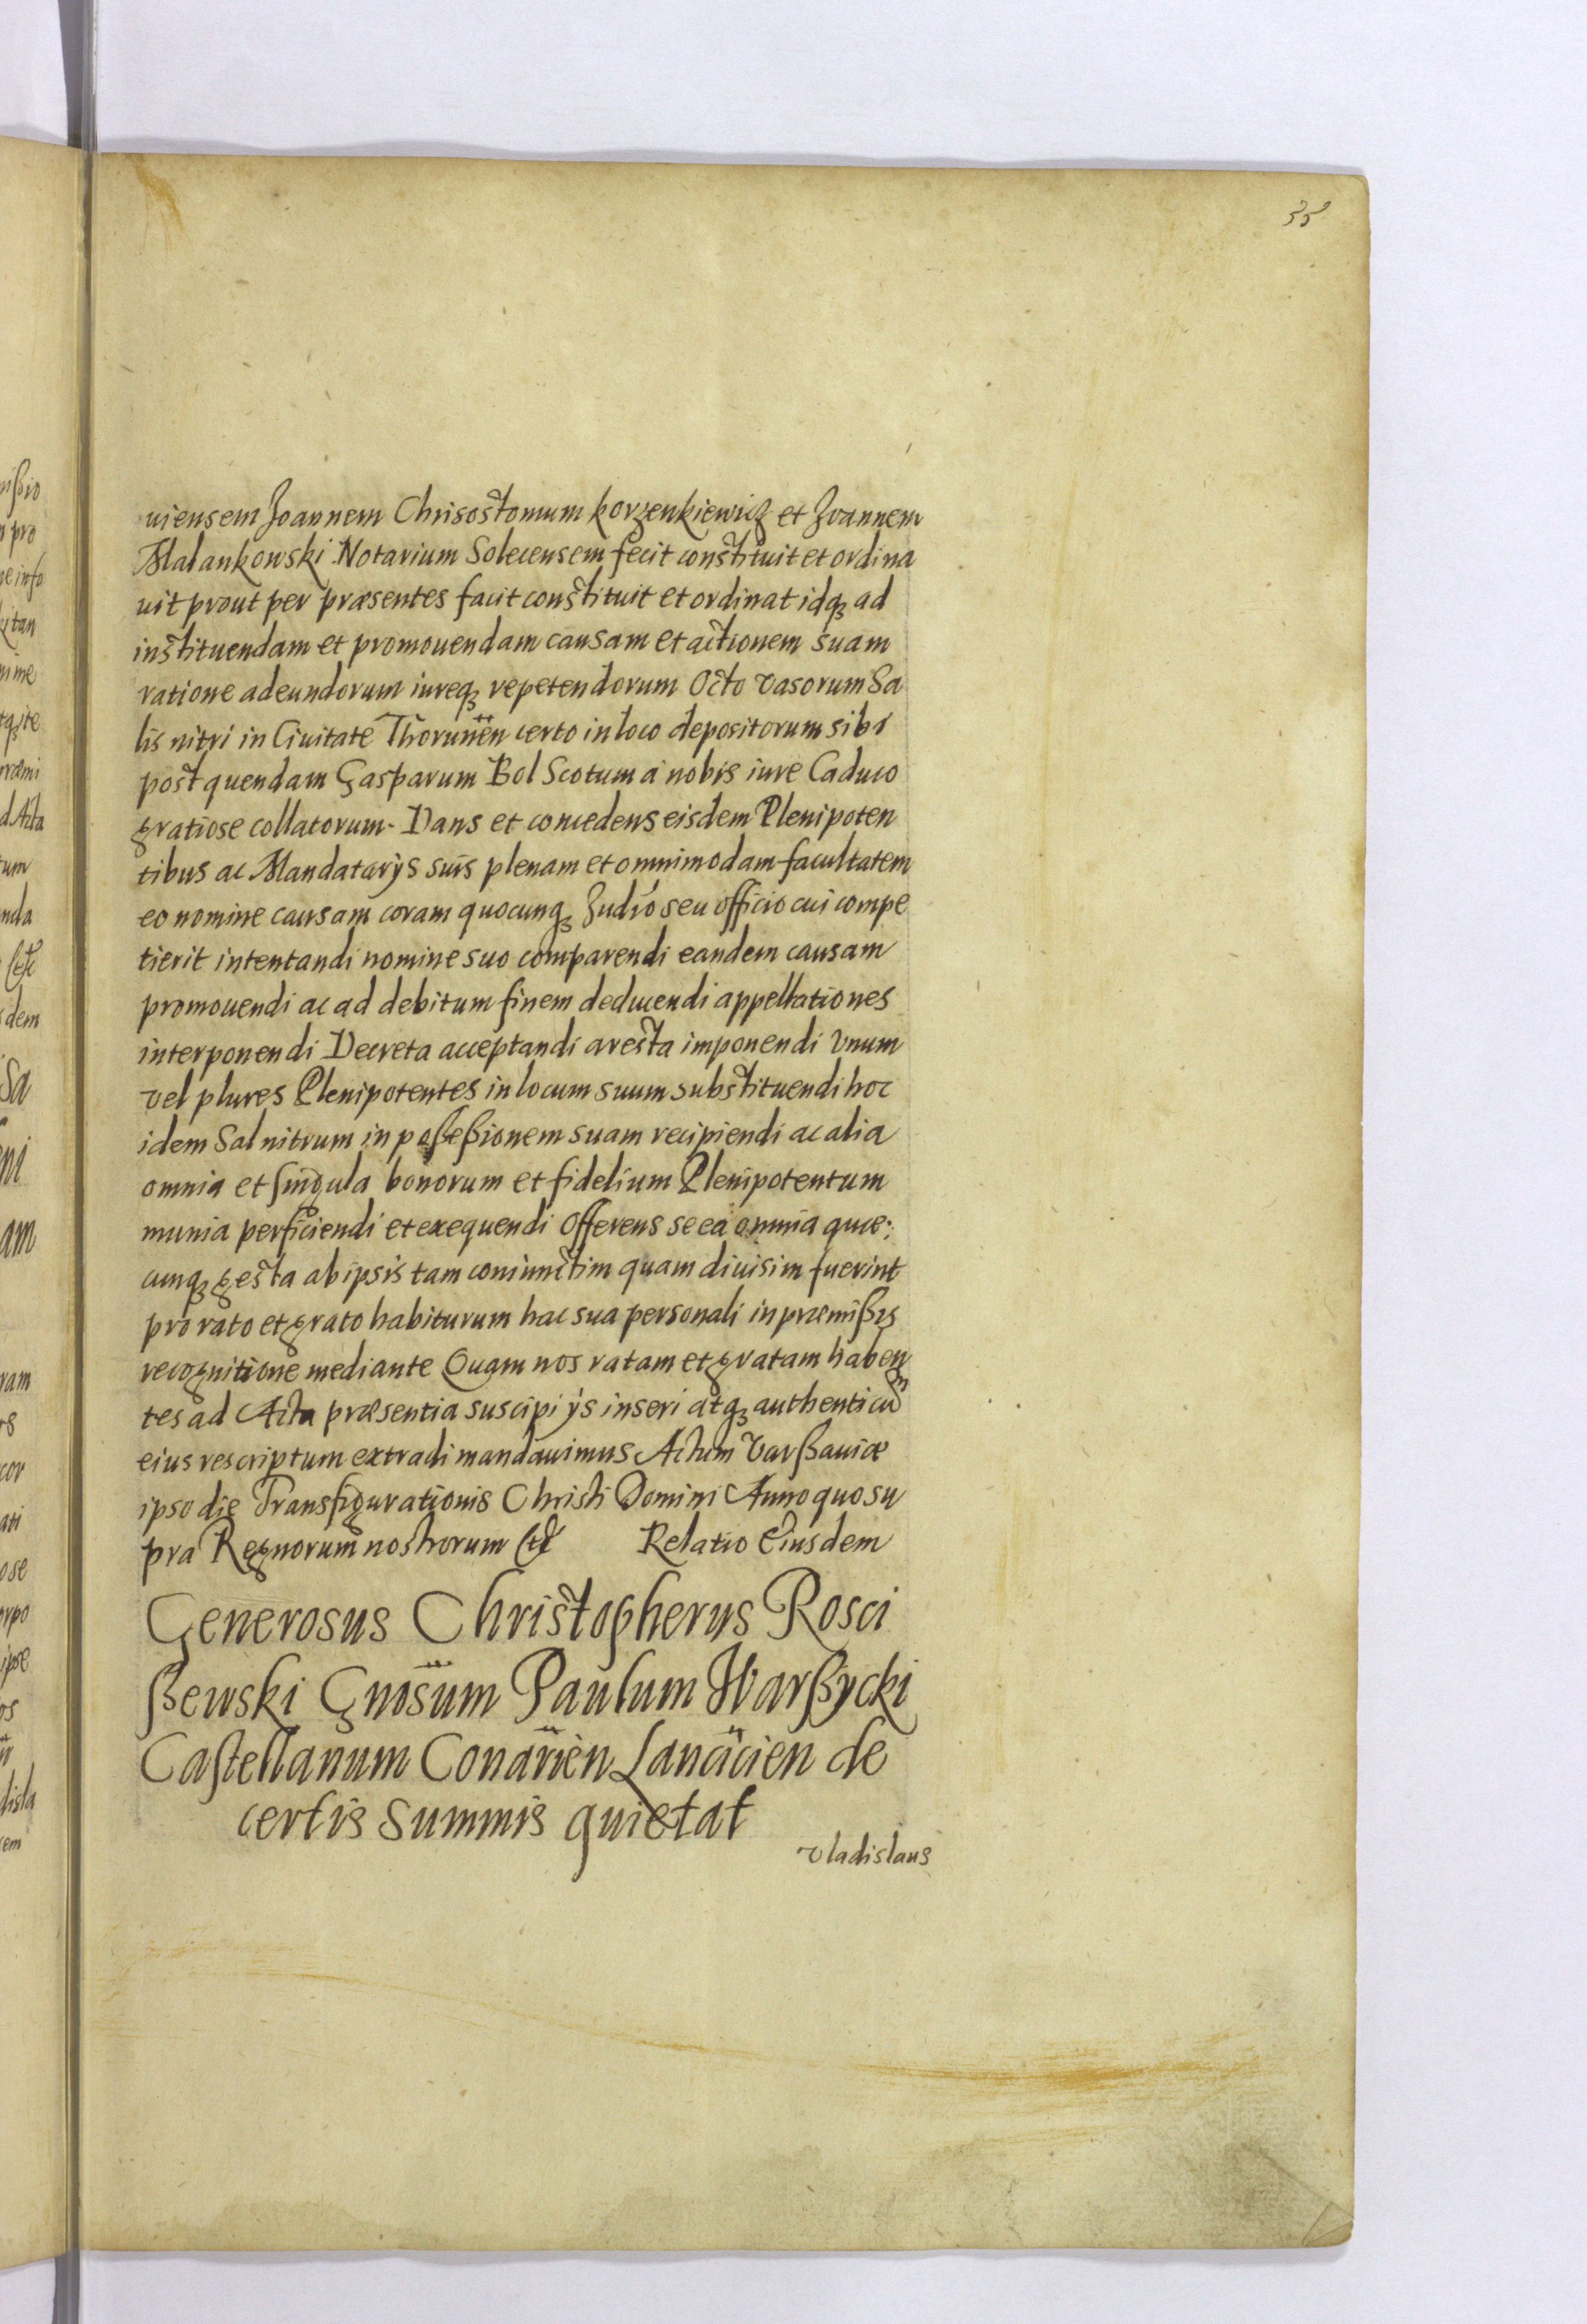 35
uiensem Joannem Chrisostomum korzenkiewicz et Joannem
Malankowski Notarium Solecensem fecit constituit et ordina
uit prout per præsentes facit constituit et ordinat idq₃ ad
instituendam et promouendam causam et actionem suam
ratione adeundorum iureq₃ repetendorum Octo vasorum Sa
lis nitri in Ciuitate Thorunen̈ certo in loco depositorum sibi
post quendam Gasparum Bol Scotum à nobis iure Caduco
gratiose collatorum. Dans et concedens eisdem Plenipoten
tibus ac Mandatarÿs suis plenam et omnimodam facultatem
eo nomine causam coram quocunq₃ Judīo seu officio cui compe
tierit intentandi nomine suo comparendi eandem causam
promouendi ac ad debitum finem deducendi appellationes
interponendi Decreta acceptandi aresta imponendi Vnum
vel plures Plenipotentes in locum suum substituendi hoc
idem Sal nitrum in poßeßionem suam recipiendi ac alia
omnia et singula bonorum et fidelium Plenipotentum
munia perficiendi et exequendi Offerens se ea omnia quæ:
cunq₃ gesta ab ipsis tam coniunctim quam diuisim fuerint
pro rato et grato habiturum hac sua personali in præmißis
recognitione mediante Quam nos ratam et gratam haben
tes ad Acta præsentia suscipi ÿs inseri atq₃ authenticum
eius rescriptum extradi mandauimus Actum Varßauiæ
ipso die Transfigurationis Christi Domini Anno quo su
pra Regnorum nostrorum etc Relatio Eiusdem
Generosus Christopherus Rosci
ßewski Gnosum̈ Paulum Warßycki
Castellanum Conarien̈ Lancicien̈ de
certis summis quietat
Vladislaus